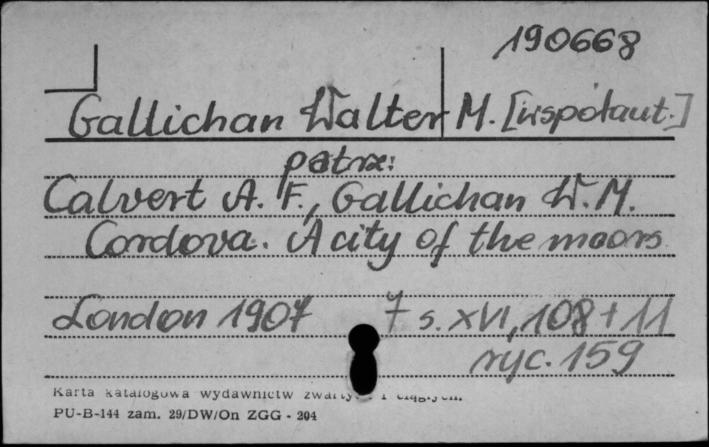 190668
Gallichan Walter M. [współaut.]
patrz:
Calvert A. F., Gallichan W. M.
Cordova. A city of the moors
London 1907 7 s. XVI, 108 + 11
ryc. 159
Karta katalogowa wydawnictw zwartych i ciągłych.
PU-B-144 zam. 29/DW/On ZGG - 204